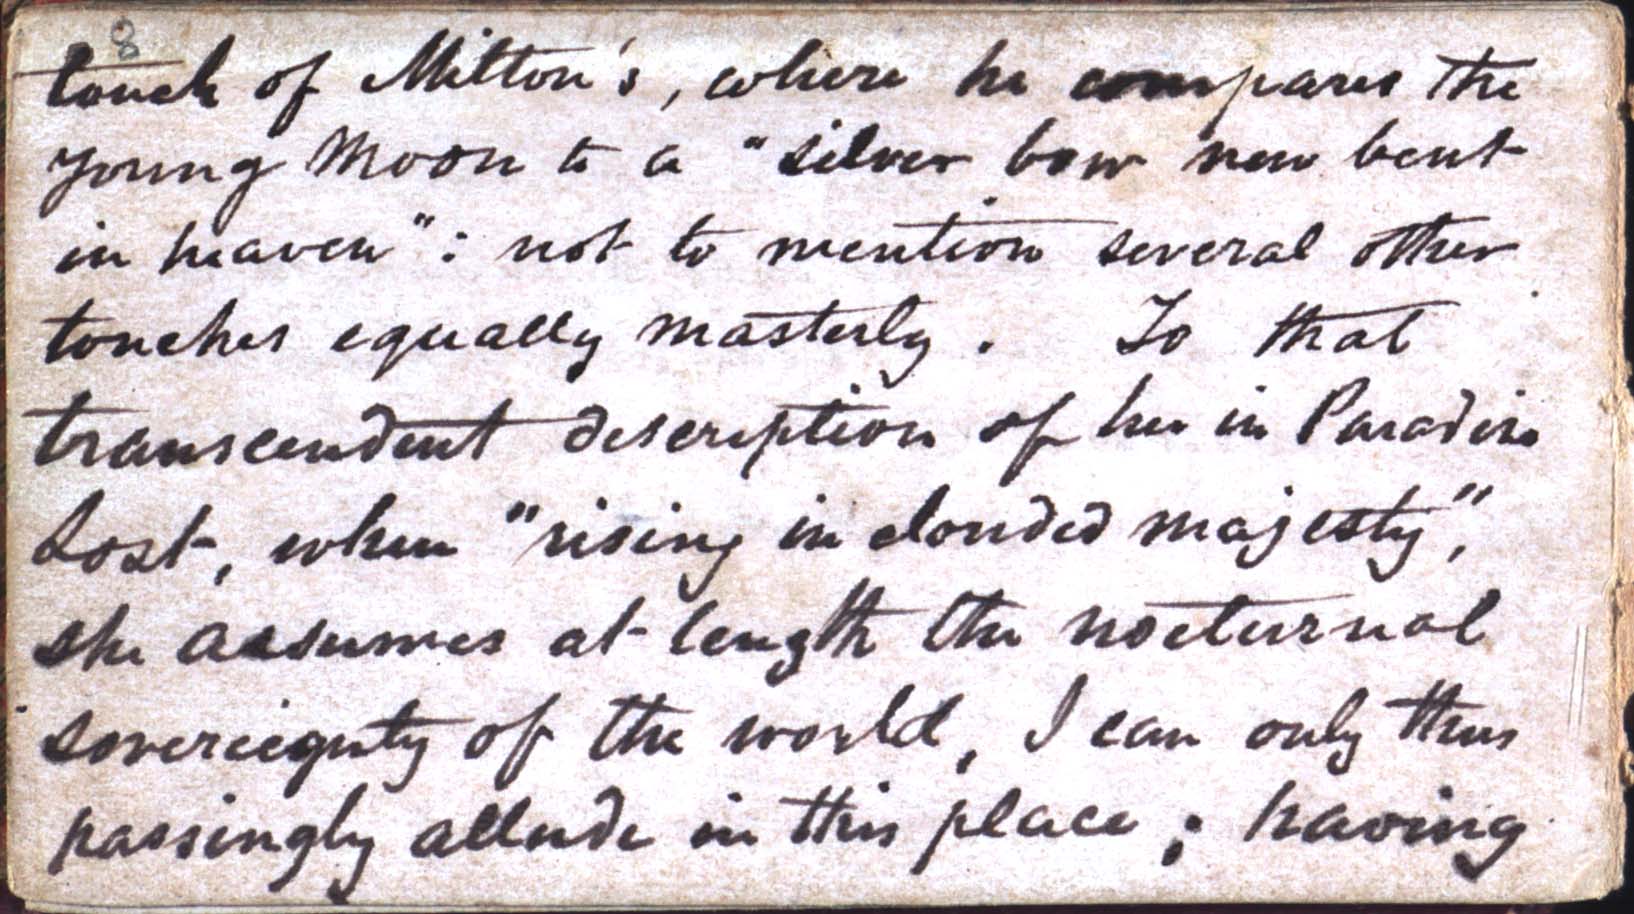 8
touch of Milton's, where he compares the
young Moon to a "silver bow new bent
in heaven": not to mention several other
touches equally masterly. To that
transcendent description of her in Paradise
Lost, when "rising in clouded majesty",
she assumes at length the nocturnal
sovereignty of the world, I can only thus
passingly allude in this place; having